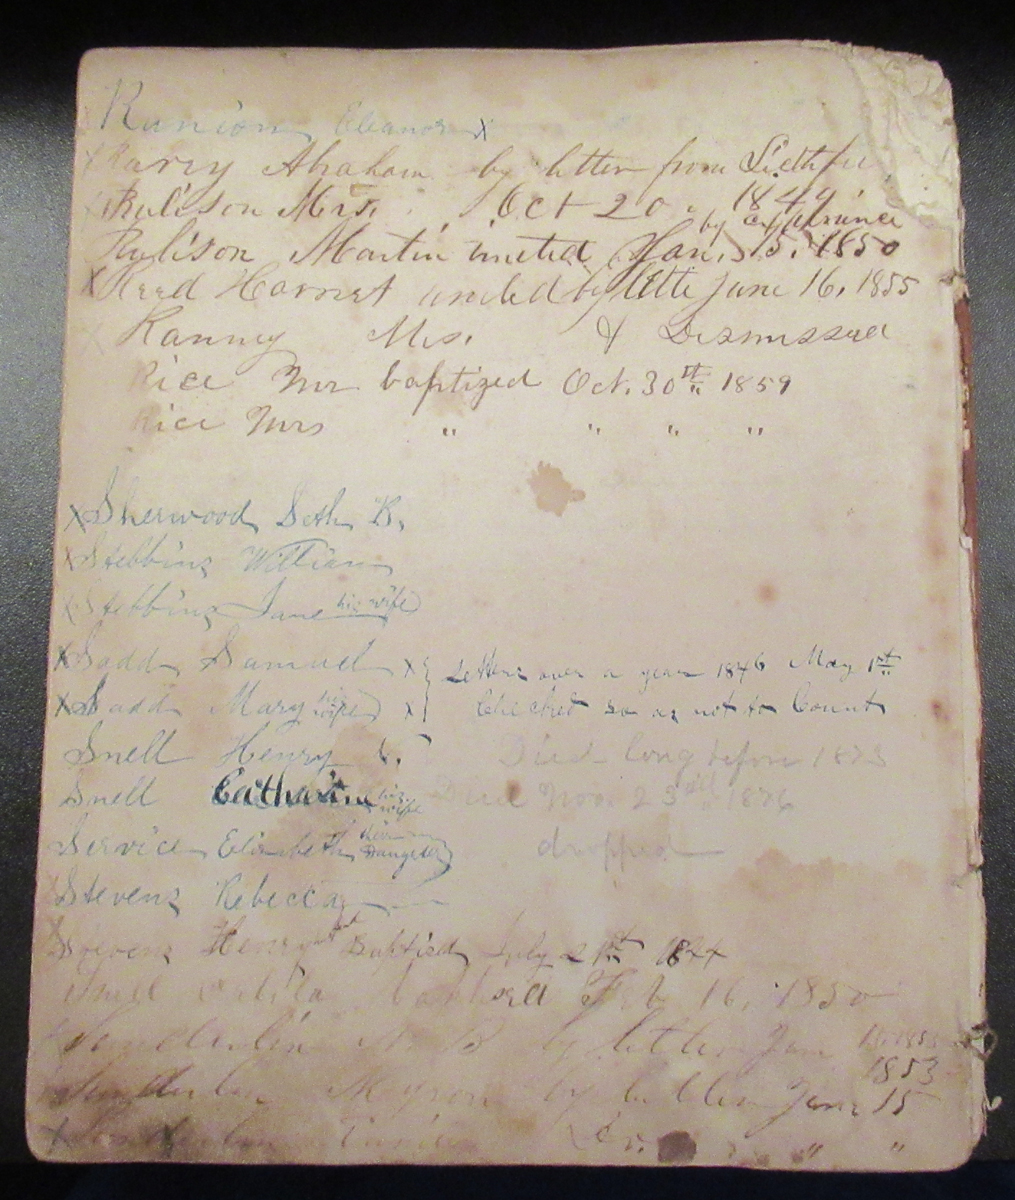 Runion Eleanor x
Abraham by letter from
Rulison Mrs. Oct 20. 1849
by experience
Rulison Martin united Jan. 15. 1850
X Reed Harriet united by lette June 16, 1855
Ranney Mrs. & Dismissed
Rice Mr baptized Oct. 30th 1859
Rice Mrs " " " "
X Sherwood Seth B.
X Stebbins William
X Stebbins Jane his wife
X Sadd Samuel X { Letters over a year 1846 May 1st
X Sadd Mary his wife X { Checked so as not to Count
Snell Henry Died long before 1873
Snell Catharine his wife Died Nov. 23rd 1876
Service Elizabeth their Daughter dropped
Stevens Rebecca
Stevens Henry Baptised July 21st 1844
Snell Feb 16, 1850
N. B. by letter Jan 15 1853
1853
Myron by letter Jan 15
X " "